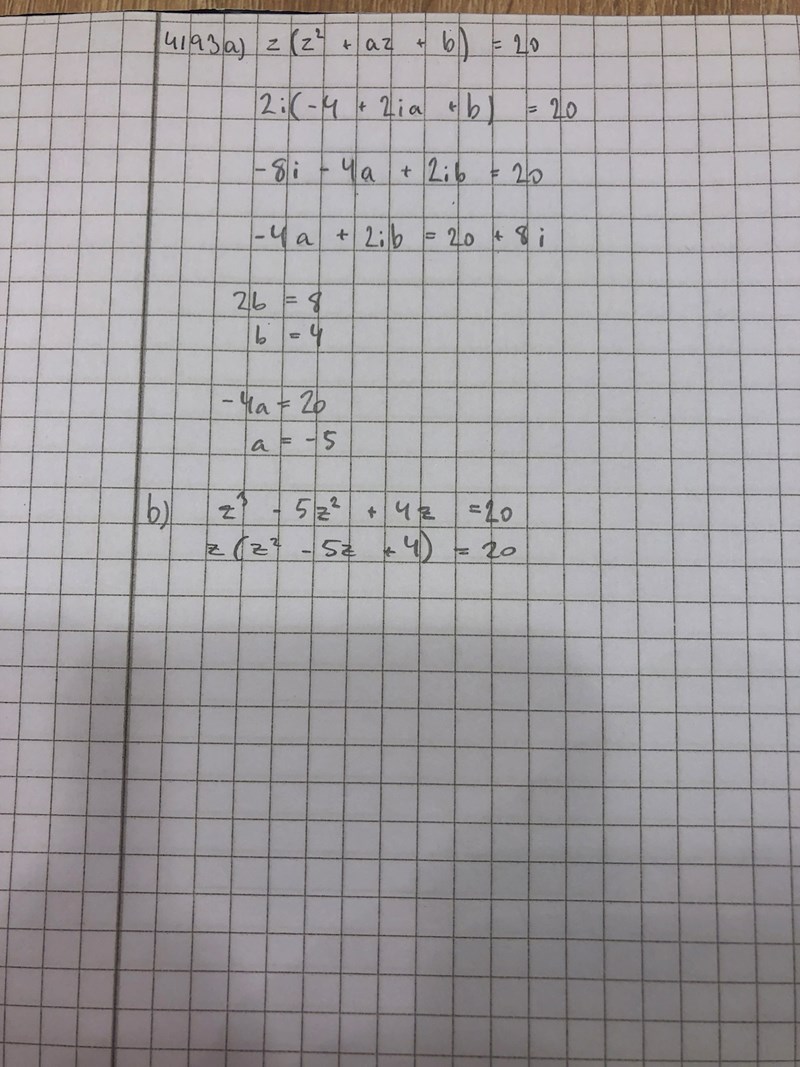 4193a) z(z² + az + b) = 20
2i(-4 + 2ia + b) = 20
-8i - 4a + 2ib = 20
-4a + 2ib = 20 + 8i
2b = 8
b = 4
-4a = 20
a = -5
b) z³ - 5z² + 4z = 20
z(z² - 5z + 4) = 20